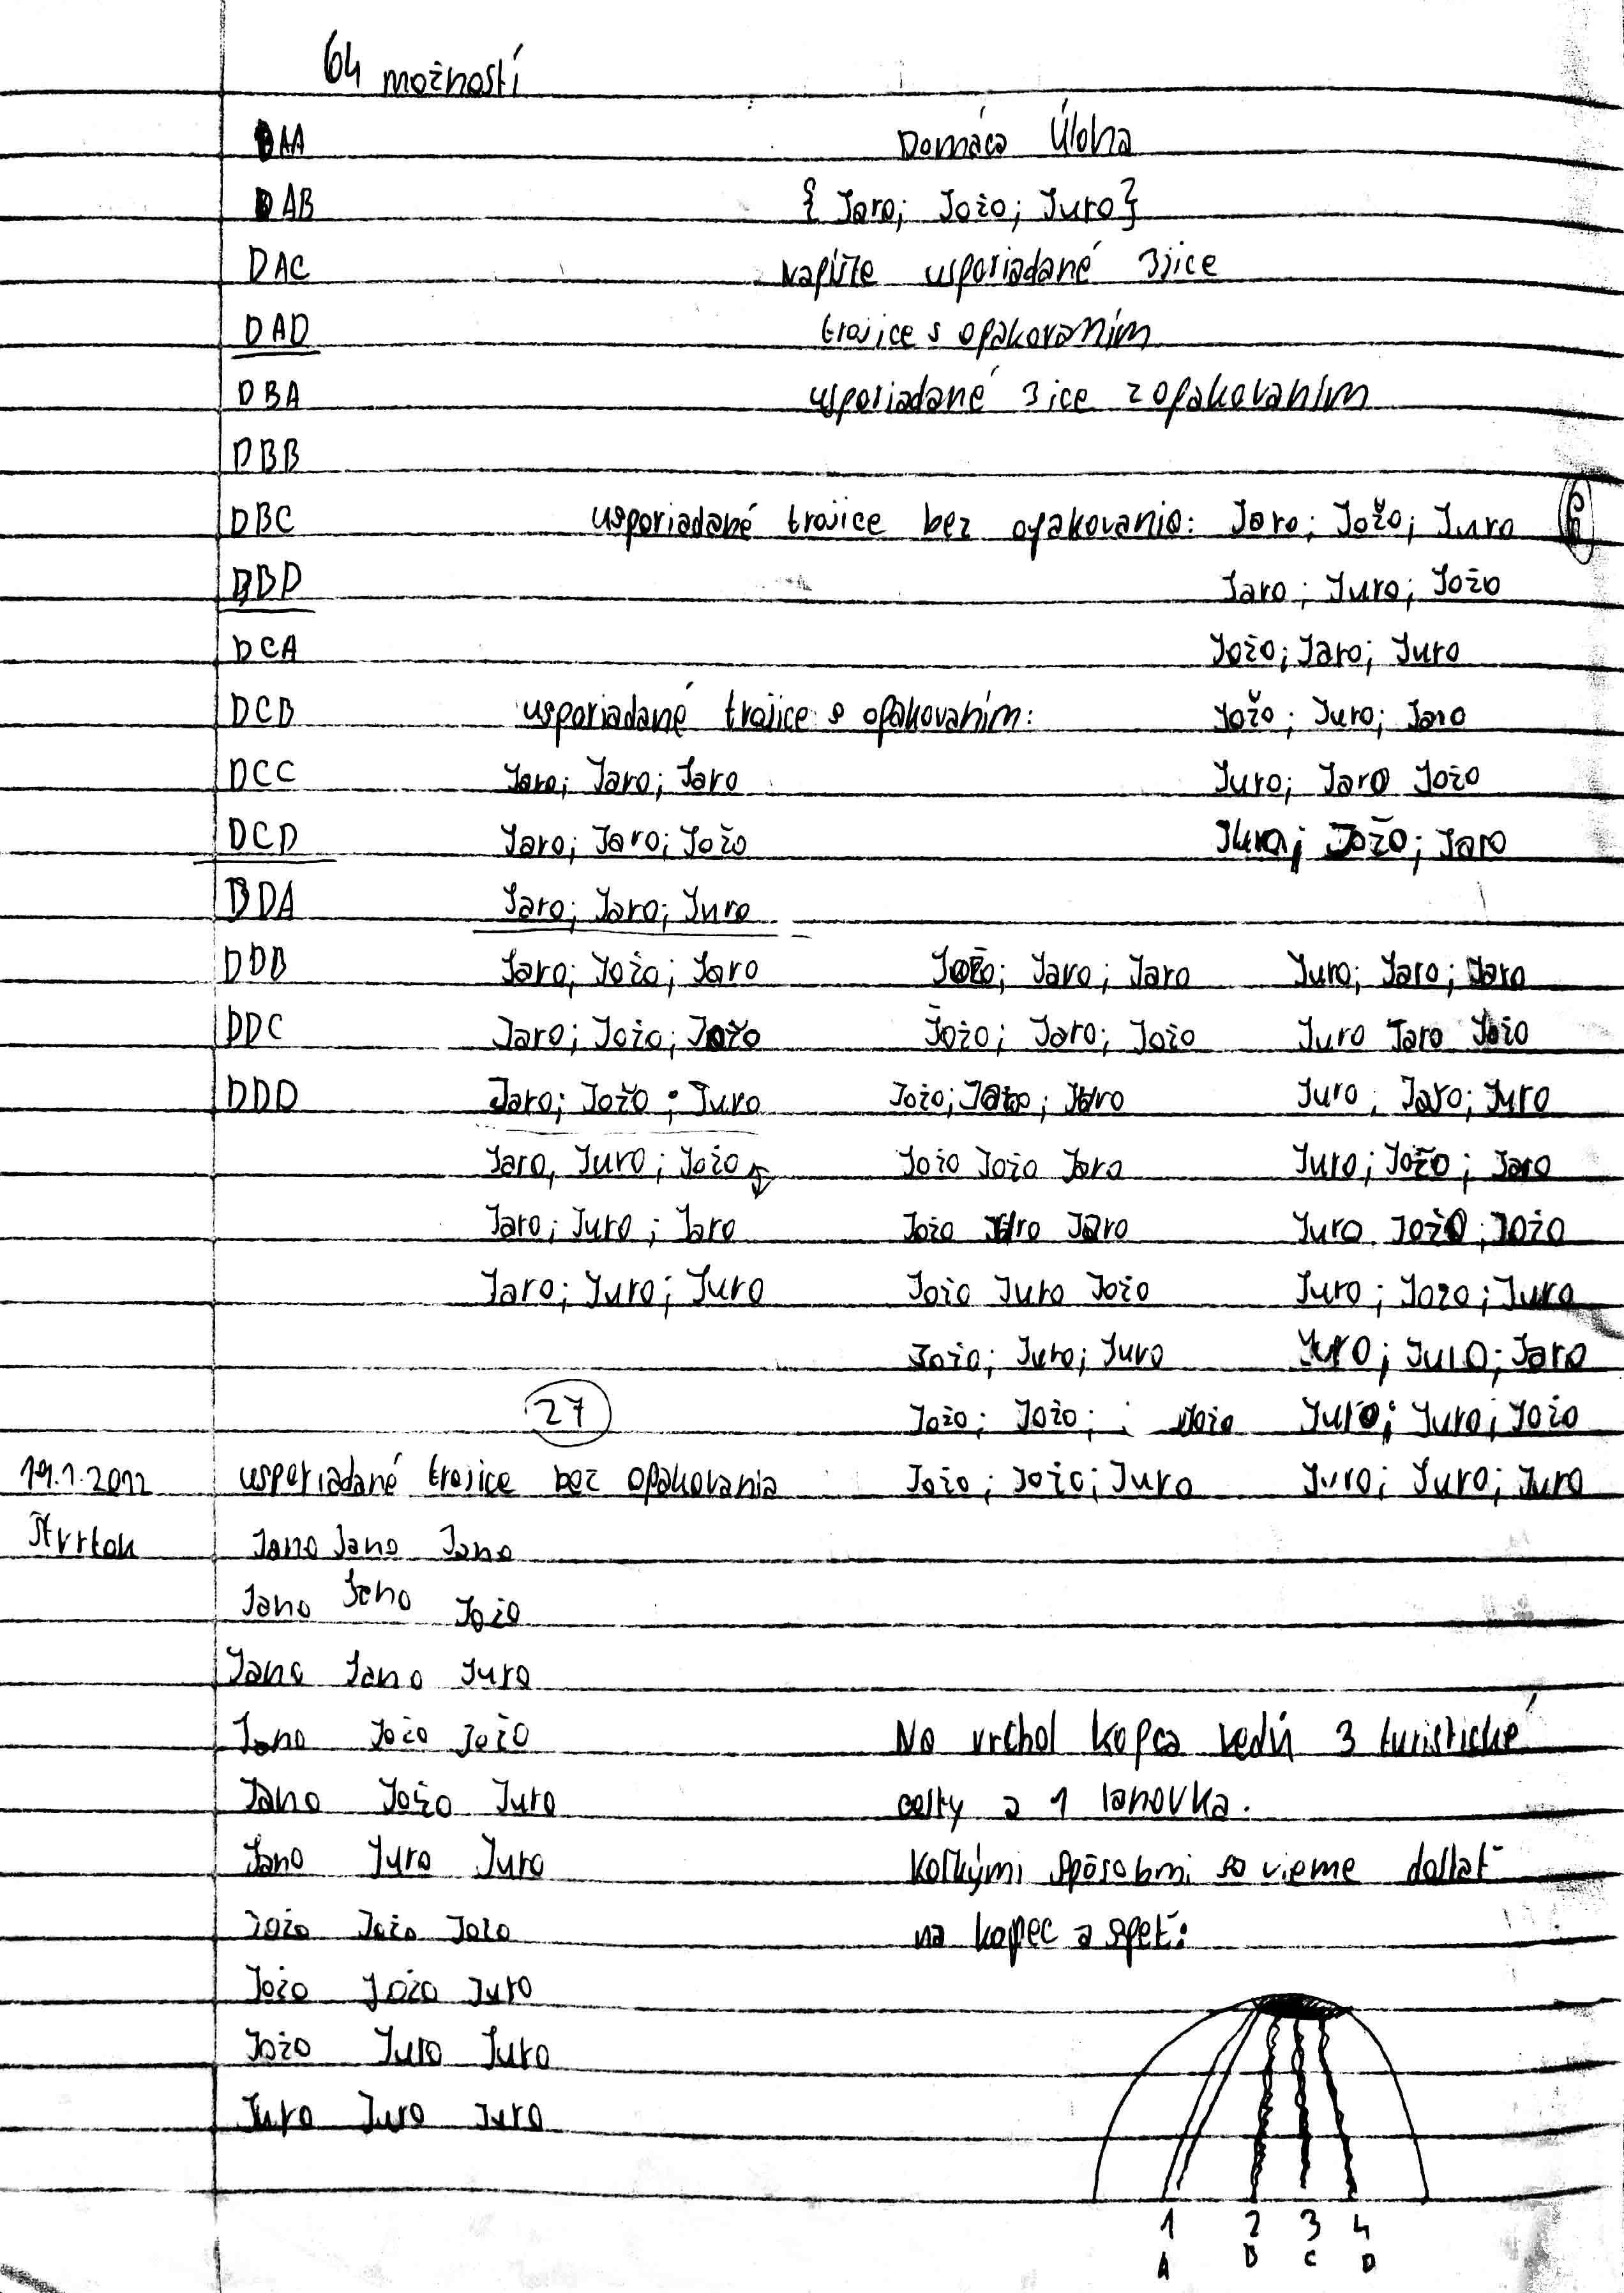 64 možností
DAA
Domáca Úloha
DAB
{ Jaro; Jožo; Juro }
DAC
Napíšte usporiadané 3jice
DAD
trojice s opakovaním
DBA
usporiadané 3ice z opakovaním
DBB
DBC usporiadané trojice bez opakovania: Jaro; Jožo; Juro
DBD Jaro; Juro; Jožo
DCA Jožo; Jaro; Juro
DCB usporiadané trojice s opakovaním: Jožo; Juro; Jaro
DCC Jaro; Jaro; Jaro Juro; Jaro Jožo
DCD Jaro; Jaro; Jožo Juro; Jožo; Jaro
DDA Jaro; Jaro; Juro
DDB Jaro; Jožo; Jaro Jožo; Jaro; Jaro Juro; Jaro; Jaro
DDC Jaro; Jožo; Jožo Jožo; Jaro; Jožo Juro Jaro Jožo
DDD Jaro; Jožo; Juro Jožo; Juro; Jaro; Juro
Jaro, Juro; Jožo Jožo Jožo Jaro Juro; Jožo; Jaro
Jaro; Juro; Jaro Jožo Juro Jaro Juro Jožo; Jožo
Jaro; Juro; Juro Jožo Juro Jožo Juro; Jožo; Juro
Jožo; Juro; Juro Juro; Juro; Jaro
27 Jožo; Jožo; ; Jožo Juro; Juro; Jožo
19.1.2012 usporiadané trojice bez opakovania Jožo; Jožo; Juro Juro; Juro; Juro
Štvrtok Jano Jano Jano
Jano Jano Jožo
Jano Jano Juro
Jano Jožo Jožo
Jano Jožo Juro
Jano Juro Juro
Jožo Jožo Jožo
Jožo Jožo Juro
Jožo Juro Juro
Juro Juro Juro
Na vrchol kopca vedú 3 turistické
cesty a 1 lanovka.
Koľkými spôsobmi sa vieme dostať
na kopec a späť:
1 2 3 4
A B C D